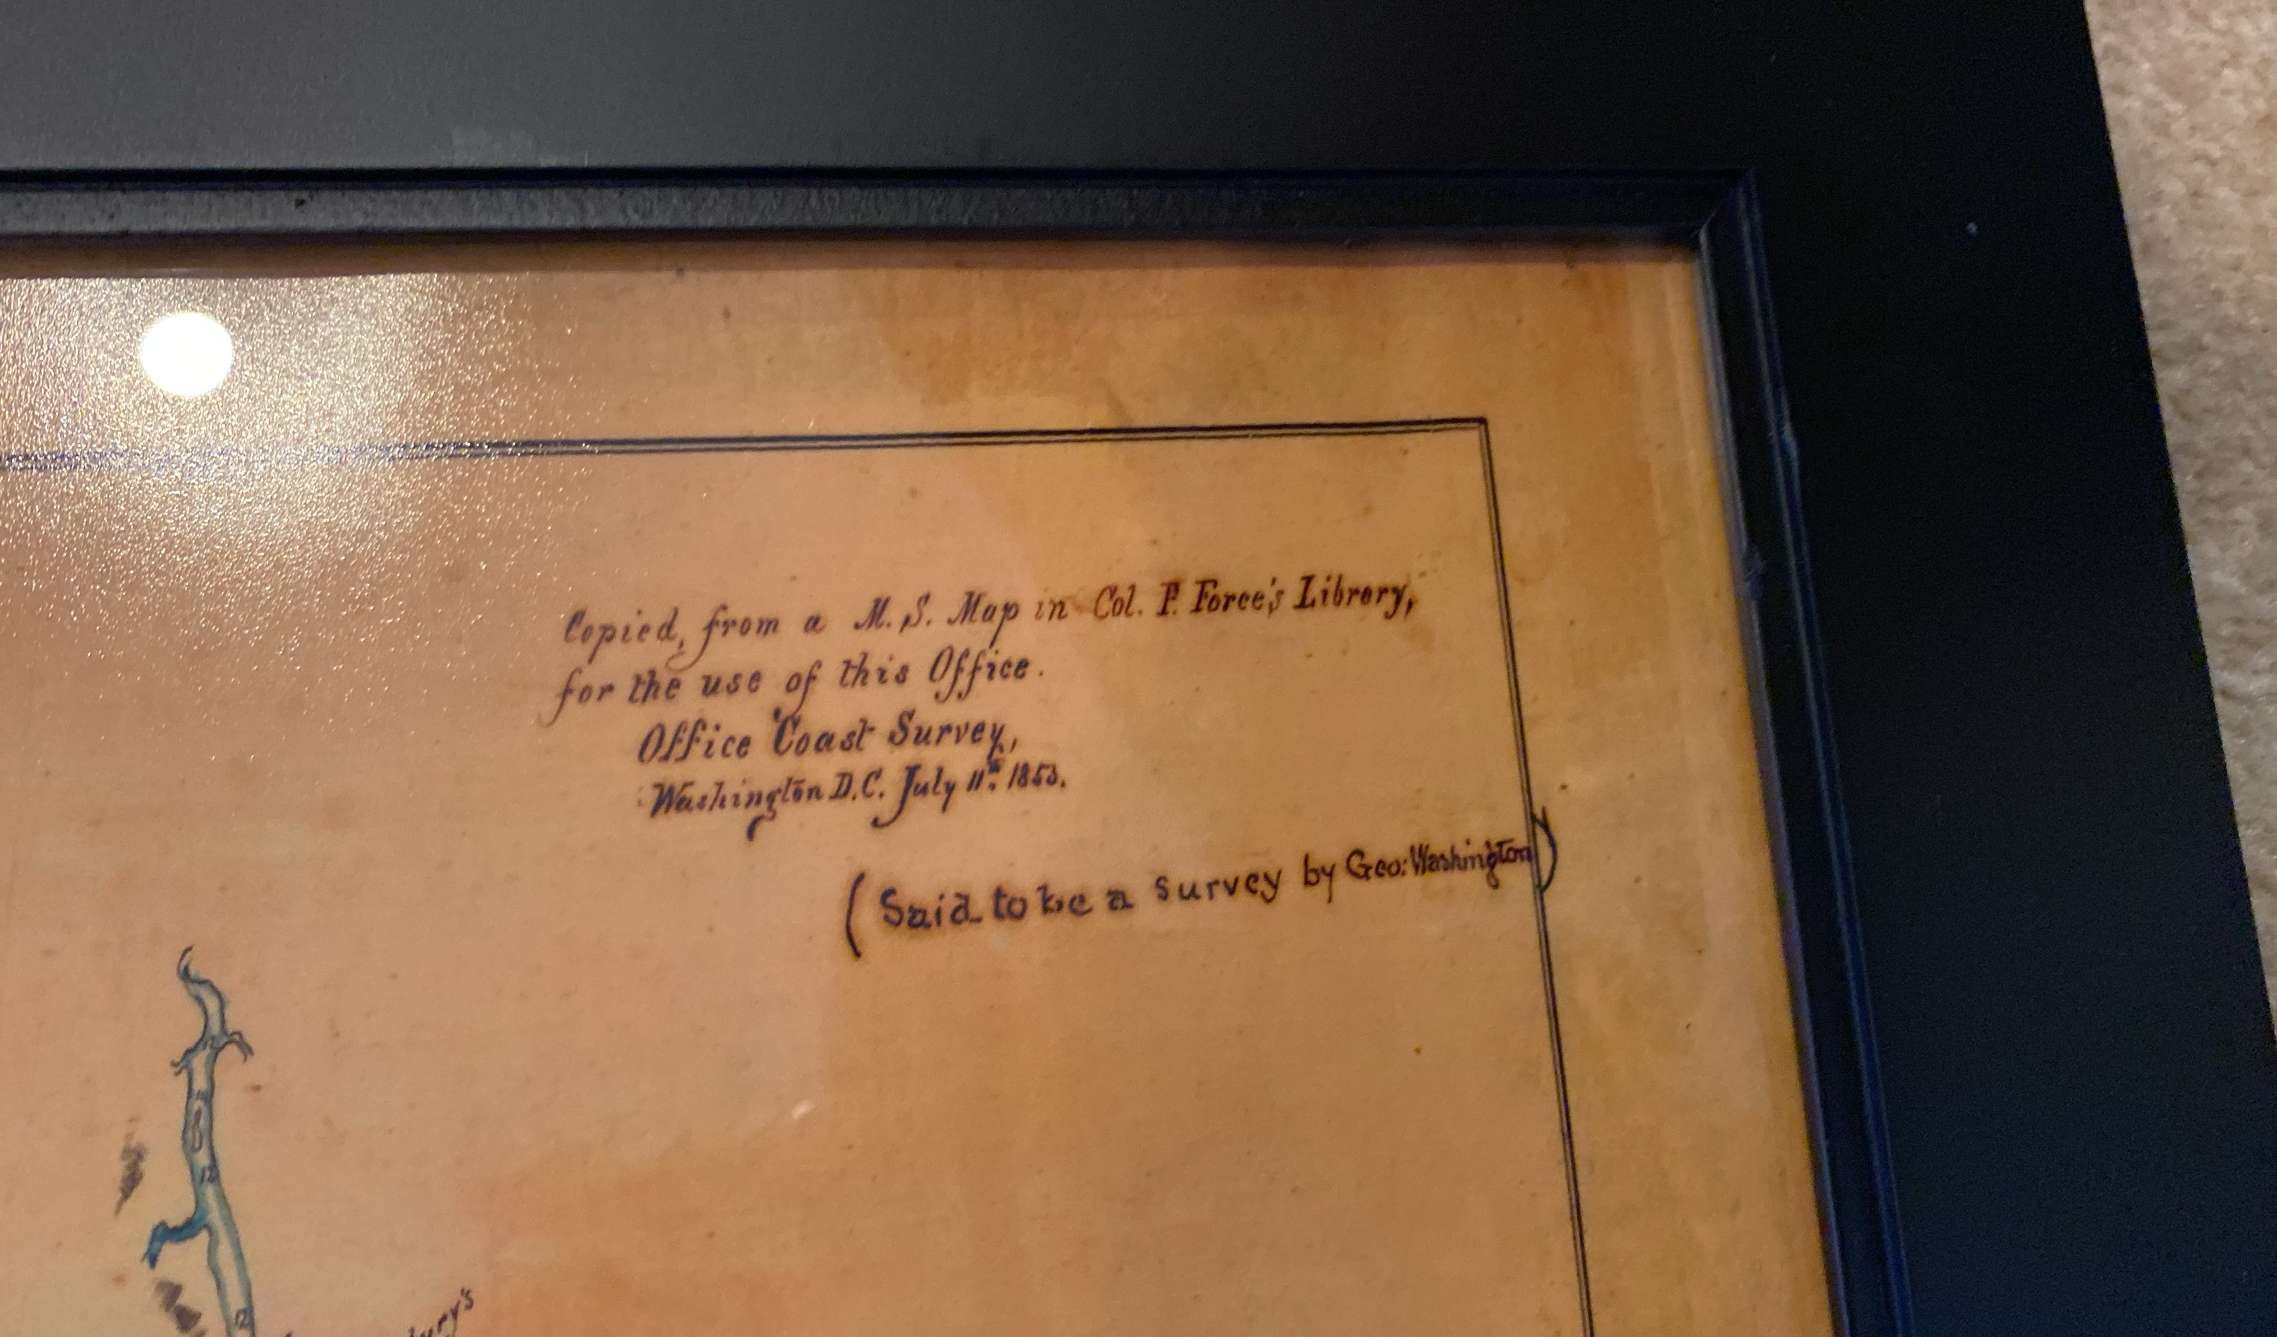 Copied, from a M. S. Map in Col. P. Force's Library,
for the use of this Office.
Office Coast Survey,
Washington D.C. July 11th. 1853.
(Said to be a survey by Geo: Washington)
12
12